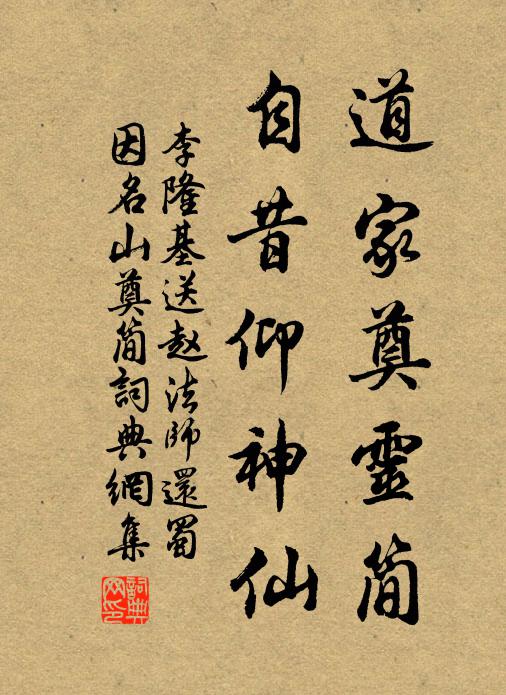 道家奠靈简
自昔仰神仙
李隆基送赵法師還蜀
因名山奠简詞典網集
詞典网印